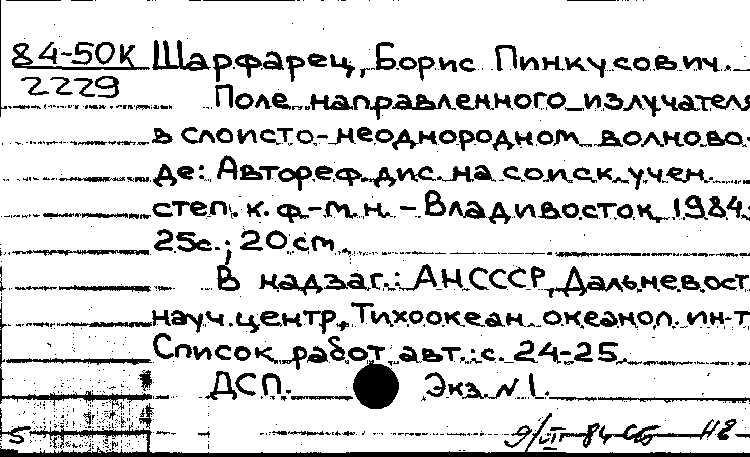 84-50К Шарфарец, Борис Пинкусович.
2229
Поле направленного излучателя
в слоисто-неоднородном волново-
де: Автореф. дис. на соиск. учен.
степ. к. ф.-м. н. - Владивосток, 1984.
25с.; 20 см.
В надзаг.: АНСССР, Дальневост.
науч. центр, Тихоокеан. океанол. ин-т
Список работ авт.: с. 24-25.
ДСП. Экз. N 1.
5 9/VI 84 НВ